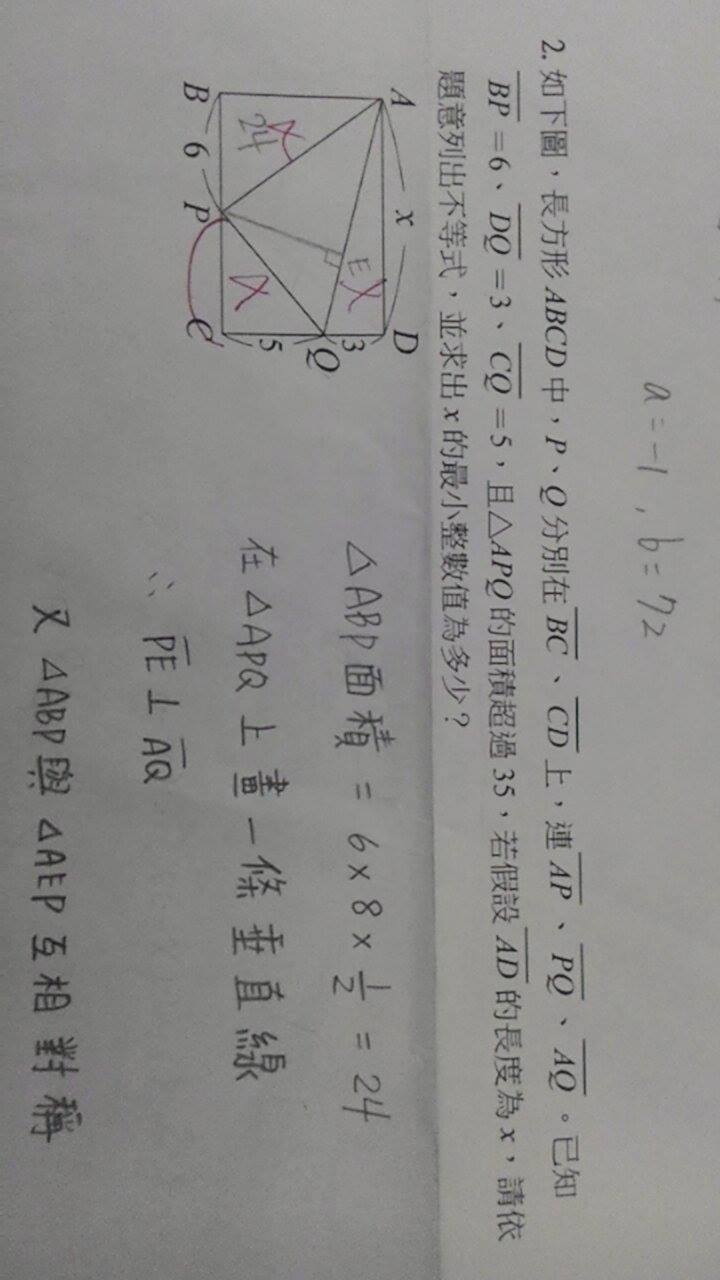 a=-1, b=72
2. 如下圖，長方形ABCD中，P、Q分別在BC、CD上，連AP、PQ、AQ。已知
BP=6、DQ=3、CQ=5，且△APQ的面積超過35，若假設AD的長度為x，請依
題意列出不等式，並求出x的最小整數值為多少？
A x D
E
3
24
Q
5
B 6 P C
△ABP面積 = 6×8×1/2 = 24
在△APQ上畫一條垂直線
∴ PE⊥AQ
又△ABP與△AEP互相對稱